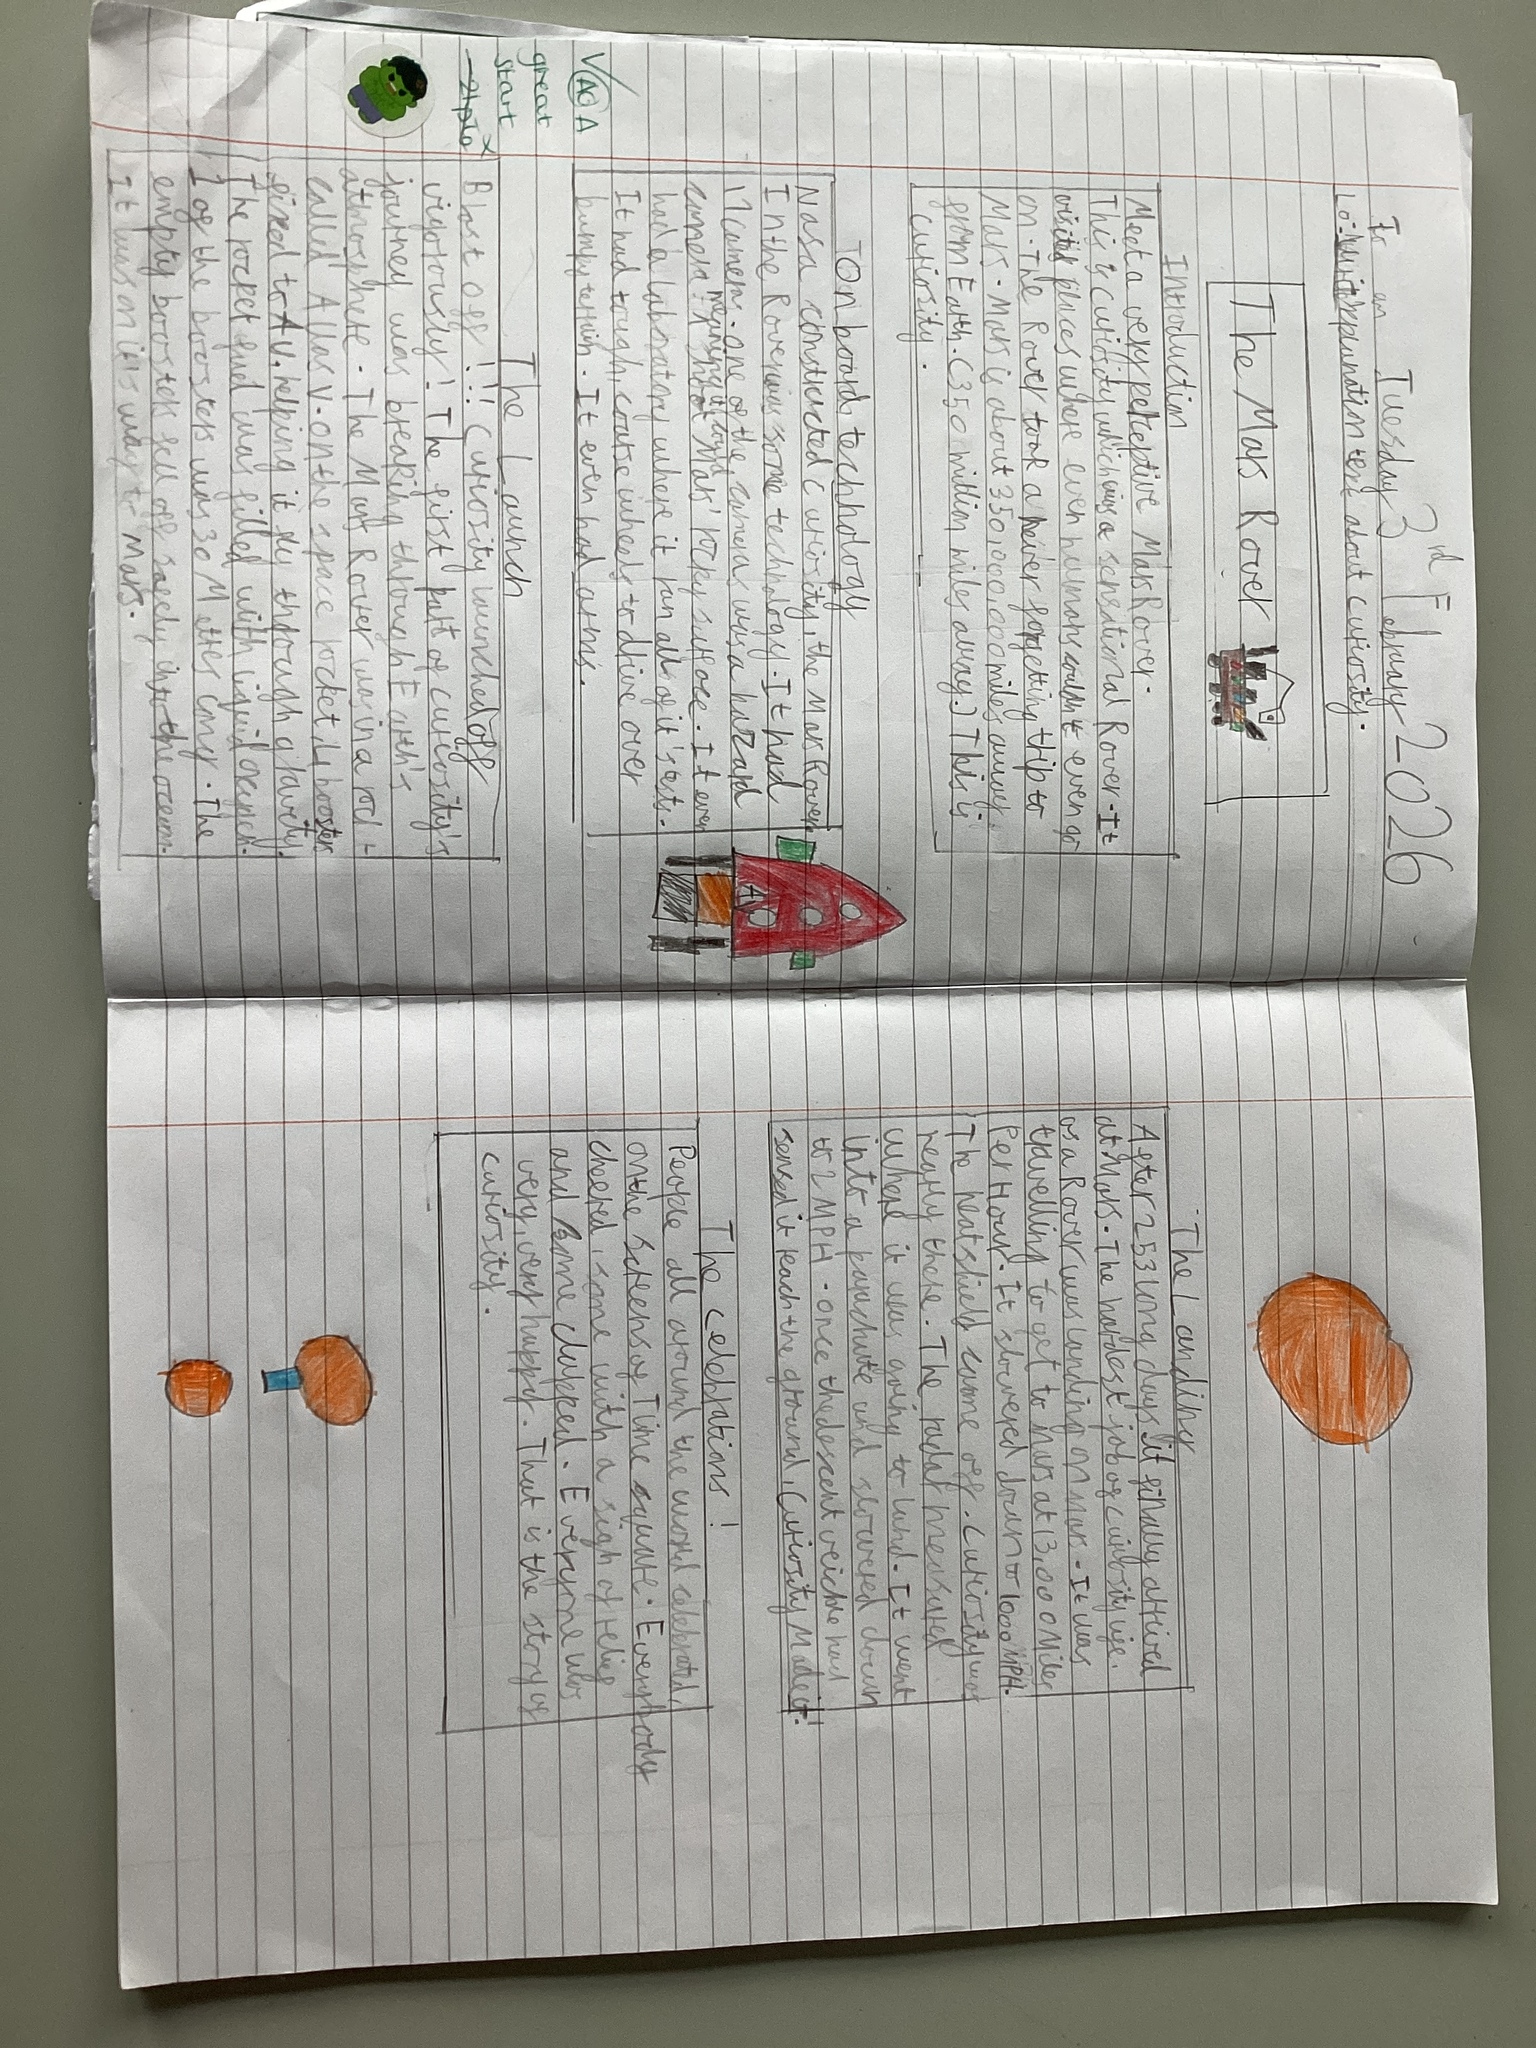 Tuesday 3rd February 2026
to an
Lo: write explanation text about curiosity.
The Mars Rover
Introduction
Meet a very perceptive Mars Rover.
This is curiosity which was a sensational Rover. It
visits places where even humans couldn't even go
on. The Rover took a never forgetting trip to
Mars. Mars is about 350,000,000 miles away
from Earth. (350 million miles away.) This is
curiosity.
On board technology
Nasa constructed curiosity, the Mars Rover.
In the Rover was some technology. It had
17 camera. one of the cameras was a hazard
camera meaning it could Mars' rocky surface. It even
had a labratory where it ran all of it's tests.
It had tough, coarse wheels to drive over
bumpy terrain. It even had arms.
The Launch
Blast off!!! Curiosity launched off
vigorously! The first part of curiosity's
journey was breaking through Earth's
atmosphere. The Mars Rover was in a rocket
called Atlas V. On the space rocket, 4 boosters
fixed to AV. helping it fly through gravity.
The rocket fuel was filled with liquid oxygen.
1 of the boosters was 30 Metres long. The
empty boosters fell off safely into the ocean.
It was on it's way to Mars.
VA AO A
great
start
The Landing
After 253 long days, it finally arrived
at Mars. The hardest job of curiosity
as a Rover was landing on Mars. It was
travelling to get to mars at 13,000 Miles
Per Hour. It slowered down to 1000 MPH.
The heatshield came off. Curiosity was
nearly there. The radar measured
where it was going to land. It went
into a parachute and slowered down
to 2 MPH. once the descent veichle had
sensed it reach the ground, Curiosity Made it!
The celebrations!
People all around the world celebrated,
on the screens of Time square. Everybody
cheered, some with a sigh of relief
and some clapped. Everyone was
very, very happy. That is the story of
curiosity.